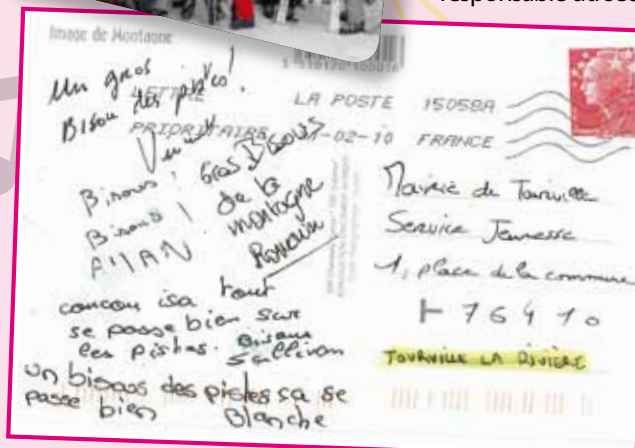 Image de Montagne
Un gros
Bisou des pistes!
LETTRE
PRIORITAIRE
LA POSTE 15058A
-02-10 FRANCE
Bisous! Gros Bisous
Bisous! de la
montagne
Romain
coucou isa tout
se passe bien sur
les pistes. Bisous
Sullivan
un bisous des pistes sa se
passe bien Blanche
Mairie de Tourville
Service Jeunesse
1, place de la commune
76410
TOURVILLE LA RIVIERE